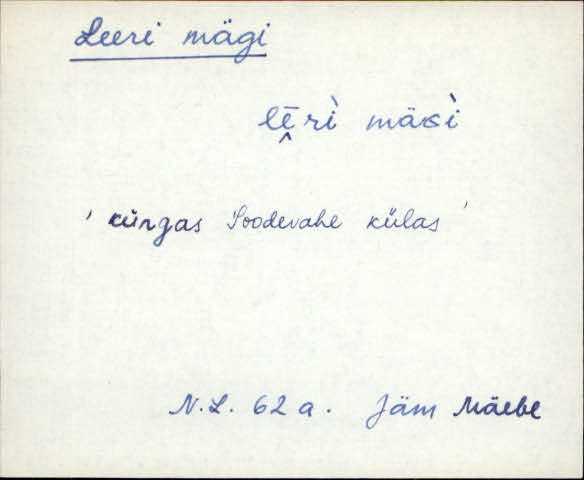 Leeri mägi
lē̬rì mäɢì
' küngas Soodevahe külas '
N.L. 62 a. Jäm Mäebe